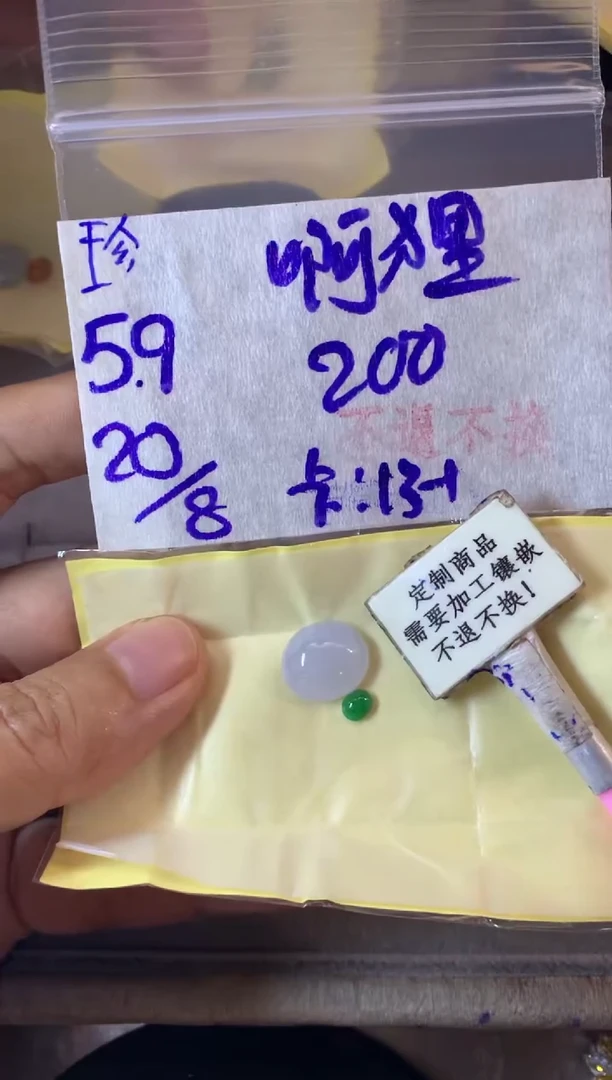 珍 啊狸
5.9 200
不退不换
20/8 卡:134
定制商品
需要加工镶嵌
不退不换!